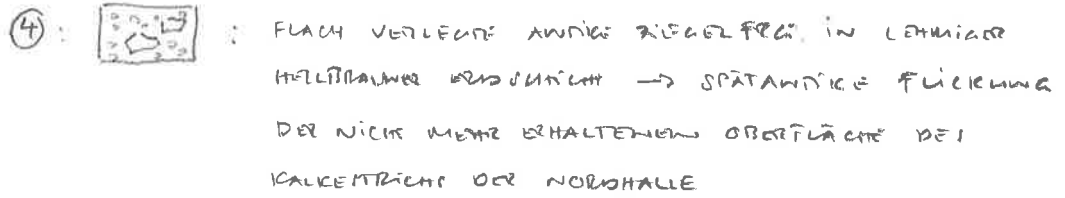 ④ : : FLACH VERLEGTE ANTIKE ZIEGELFRG. IN LEHMIGER
HELLBRAUNER ERDSCHICHT → SPÄTANTIKE FLICKUNG
DER NICHT MEHR ERHALTENEN OBERFLÄCHE DES
KALKESTRICHS DER NORDHALLE